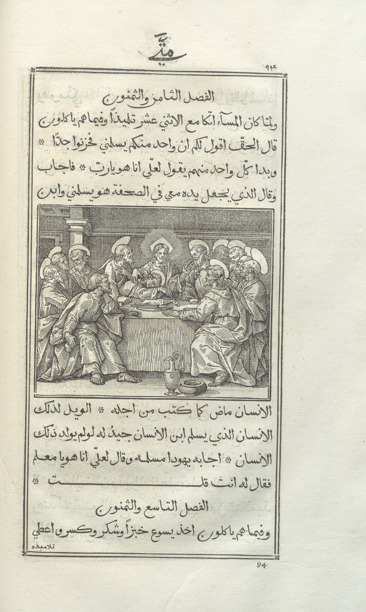 متي
٩٤
الفصل الثامن والثمنون
ولمّا كان المساء اتكا مع الاثني عشر تلميذًا وفيما هم ياكلون
قال الحقّ اقول لكم ان واحد منكم يسلمني فحزنوا جدًّا *
وبدا كلّ واحد منهم يقول لعلّي انا هو يا ربّ * فاجاب
وقال الذي يجعل يده معي في الصحفة هو يسلمني وابن
الانسان ماض كما كتب من اجله * الويل لذلك
الانسان الذي يسلم ابن الانسان جيد له لو لم يولد ذلك
الانسان * اجابه يهودا مسلمه وقال لعلّي انا هو يا معلم
فقال له انت قلت *
الفصل التاسع والثمنون
وفيما هم ياكلون اخذ يسوع خبزًا وشكر وكسر واعطي
تلاميذه
94